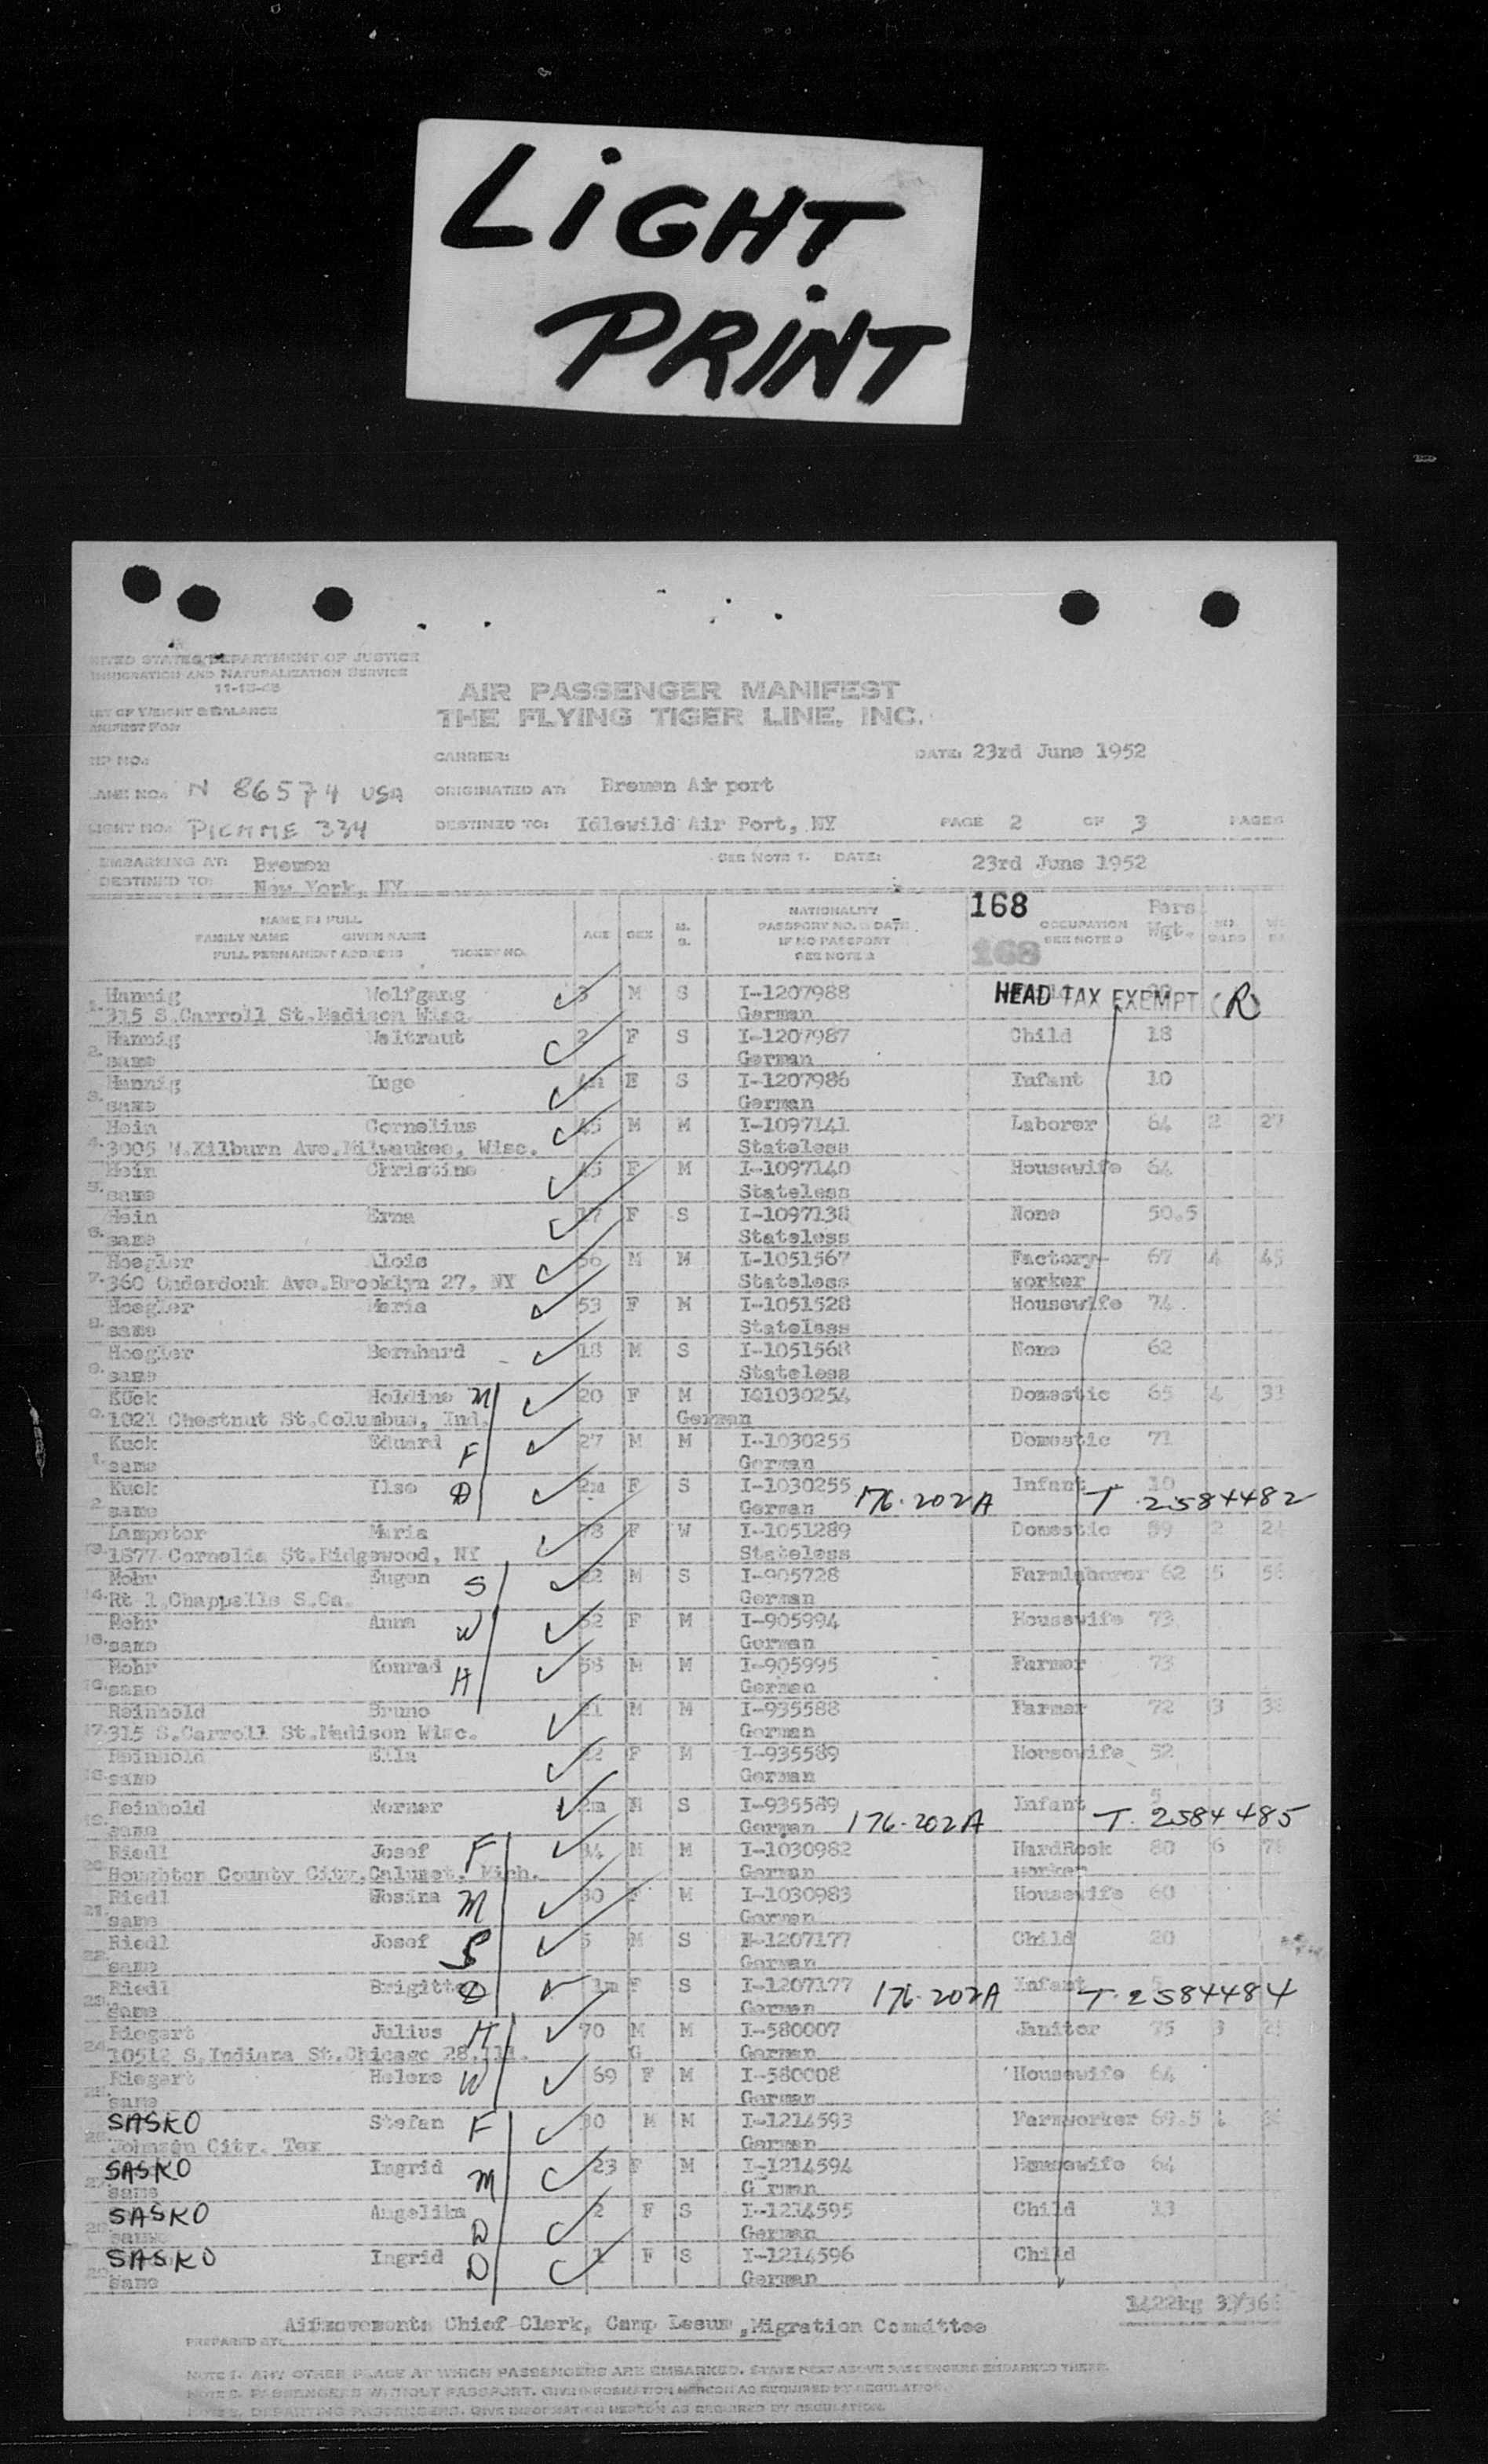 LIGHT
PRINT
UNITED STATES DEPARTMENT OF JUSTICE
IMMIGRATION AND NATURALIZATION SERVICE
AIR PASSENGER MANIFEST
THE FLYING TIGER LINE, INC.
CARRIER: DATE: 23rd June 1952
N 86574 USA ORIGINATED AT: Bremen Air port
DESTINED TO: Idlewild Air Port, NY PAGE 2 OF 3 PAGES
EMBARKING AT: Bremen SEE NOTE 1. DATE: 23rd June 1952
DESTINED TO: New York, NY
168 Pers
NAME IN FULL NATIONALITY
FAMILY NAME GIVEN NAME AGE SEX M. S. PASSPORT NO. & DATE OCCUPATION Wgt.
IF NO PASSPORT SEE NOTE 3
FULL PERMANENT ADDRESS TICKET NO. SEE NOTE 2 168
Hannig Wolfgang 3 M S I-1207988 HEAD TAX EXEMPT (R)
1. 315 S.Carroll St.Madison Wisc. German
Hannig Waltraut 2 F S I-1207987 Child 18
2. same German
Hannig Inge S I-1207986 Infant 10
3. same German
Hein Cornelius 45 M M I-1097141 Laborer 64 2 27
4. 3005 W.Kilburn Ave.Milwaukee, Wisc. Stateless
Hein Christine 45 F M I-1097140 Housewife 64
5. same Stateless
Hein Erna 17 F S I-1097138 None 50.5
6. same Stateless
Hoegler Alois 56 M M I-1051567 Factory- 67 4 45
7. 360 Onderdonk Ave.Brooklyn 27, NY Stateless worker
Hoegler Maria 53 F M I-1051528 Housewife 74
8. same Stateless
Hoegler Bernhard 18 M S I-1051568 None 62
9. same Stateless
Kück Holdine M 20 F M I01030254 Domestic 65 4 33
1021 Chestnut St.Columbus, Ind. German
Kuck Eduard F 27 M M I-1030255 Domestic 71
same German
Kuck Ilse D 2m F S I-1030255 Infant 10
same German 176-202A T-2584482
Lampetor Maria 73 F W I-1051289 Domestic 89 2
1877 Cornelia St.Ridgewood, NY Stateless
Mohr Eugen S 22 M S I-905728 Farmlaborer 62 5
14. Rt 1,Chappells S.Ca. German
Mohr Anna W 52 F M I-905994 Housewife 73
same German
Mohr Konrad H 58 M M I-905995 Farmer 73
same German
Reinhold Bruno 21 M M I-935588 Farmer 72 3
17. 315 S.Carroll St.Madison Wisc. German
Reinhold Ella 22 F M I-935589 Housewife 52
same German
Reinhold Werner 2m M S I-935589 Infant 5
same German 176-202A T-2584485
Riedl Josef F M M I-1030982 HardRock 80 6
Houghton County City,Calumet, Mich. German worker
Riedl Rosina M 30 F M I-1030983 Housewife 60
21. same German
Riedl Josef S 5 M S I-1207177 Child 20
22. same German
Riedl Brigitte D 1m F S I-1207177 Infant
23. same German 176-202A T-2584484
Riegert Julius H 70 M M I-580007 Janitor 75 3
24. 10512 S.Indiana St.Chicago 28,Ill. G German
Riegert Helene W 69 F M I-580008 Housewife 64
same German
SASKO Stefan F 30 M M I-1214593 Farmworker 69.5
Johnson City, Tex German
SASKO Ingrid M 23 F M I-1214594 Housewife 64
same G rman
SASKO Angelika D 2 F S I-1214595 Child 13
same German
SASKO Ingrid D 1 F S I-1214596 Child
same German
1422kg
Chief Clerk, Camp Lesum, Migration Committee
PREPARED BY:
NOTE 1. ANY OTHER PLACE AT WHICH PASSENGERS ARE EMBARKED. STATE NEXT ABOVE PASSENGERS EMBARKED THERE.
NOTE 2. PASSENGERS WITHOUT PASSPORT. GIVE INFORMATION HEREON AS REQUIRED BY REGULATION.
NOTE 3. DEPARTING PASSENGERS. GIVE INFORMATION HEREON AS REQUIRED BY REGULATION.